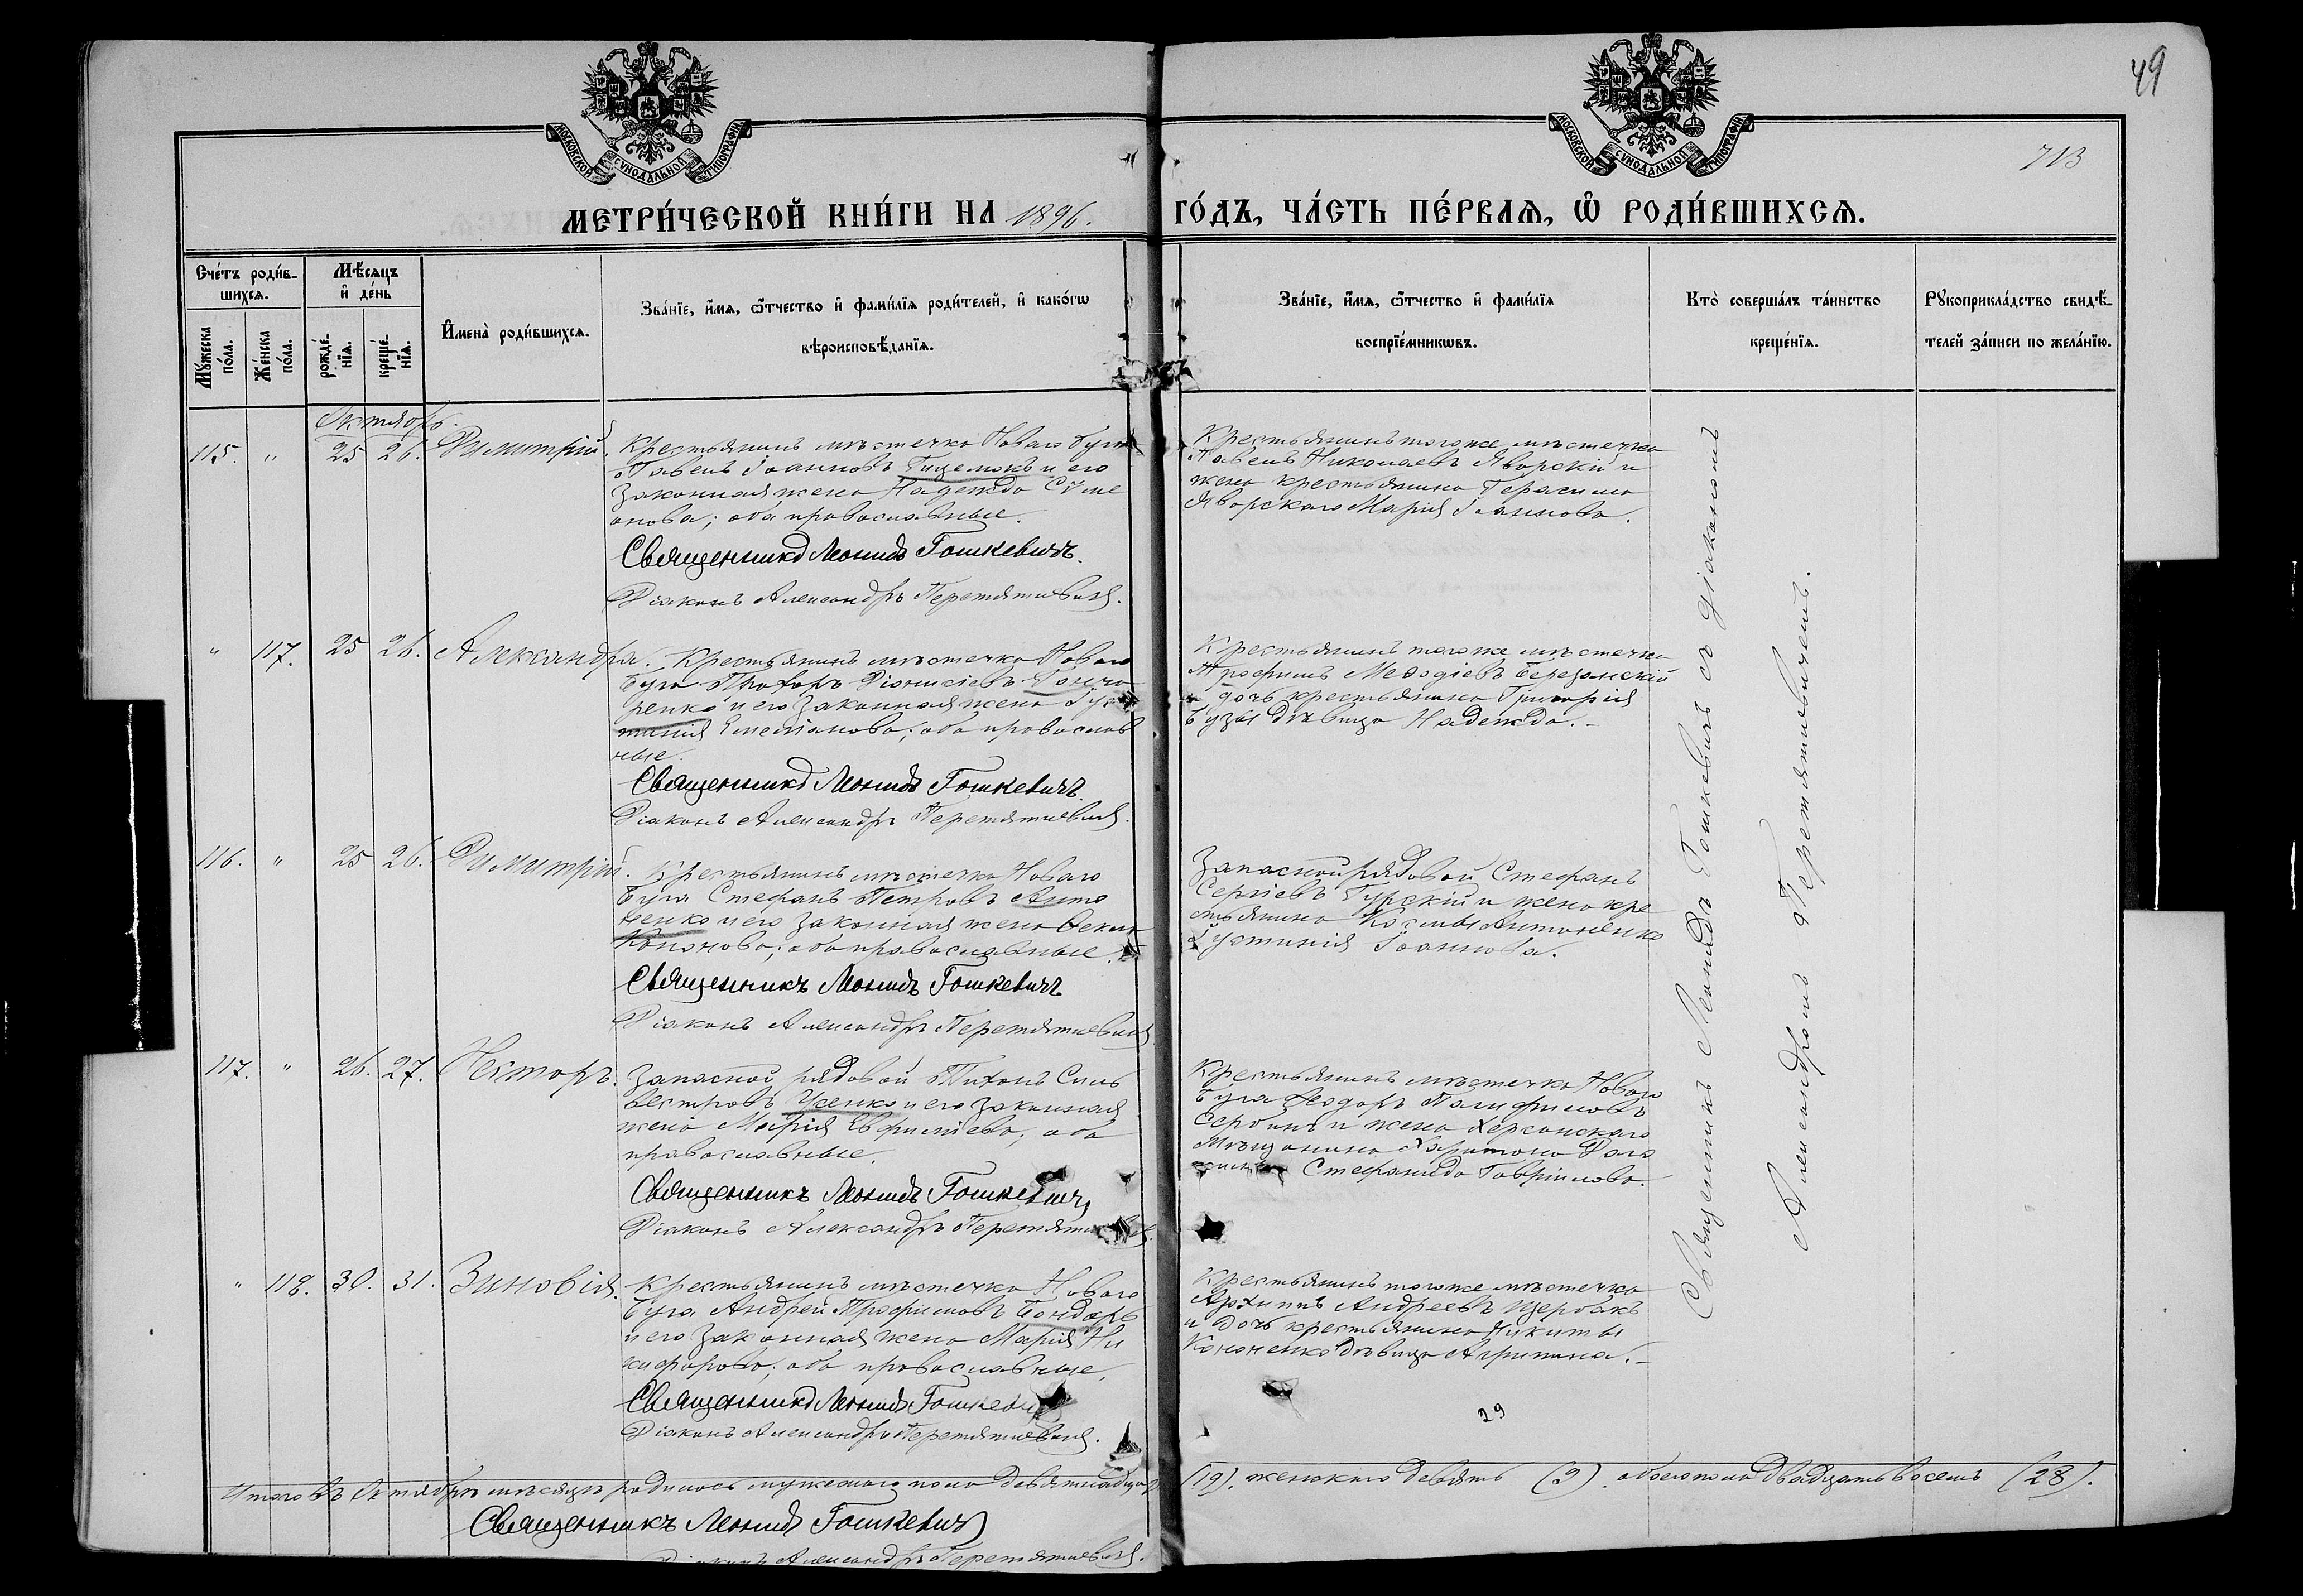 49
МОСКОВСКОЙ СѴНОДАЛЬНОЙ ТИПОГРАФІИ
МОСКОВСКОЙ СѴНОДАЛЬНОЙ ТИПОГРАФІИ
713
МЕТРИ́ЧЕСКОЙ КНИ́ГИ НА 1896. ГО́ДЪ, ЧА́СТЬ ПЕ́РВАѦ, Ѽ РОДИ́ВШИХСѦ.
Сче́тъ роди́в-
шихсѧ.
Мꙋ́жеска
по́ла.
Же́нска
по́ла.
Мѣ́сѧцъ
и҆ де́нь
рожде́-
нїѧ.
креще́-
нїѧ.
И҆мена̀ роди́вшихсѧ.
Зва́нїе, и҆́мѧ, ѻ҆́тчество и҆ фами́лїѧ роди́телей, и҆ како́гѡ
вѣроисповѣ́данїѧ.
Зва́нїе, и҆́мѧ, ѻ҆́тчество и҆ фами́лїѧ
воспрїе́мникѡвъ.
Кто̀ соверша́лъ та́инство
креще́нїѧ.
Рꙋкоприкла́дство свидѣ́-
телей за́писи по жела́нїю.
Октябрь.
115. " 25 26. Димитрій.
Крестьянинъ мѣстечка Новаго Буга
Павелъ Іоанновъ и его
законная жена Надежда Симе
онова; оба православные.
Священникъ Леонидъ Гошкевичъ.
Діаконъ Александръ Перетятковичъ.
Крестьянинъ того же мѣстечка
Павелъ Николаевъ Яворскій и
жена крестьянина Герасима
Яворскаго Марія Іоаннова.
" 117. 25 26. Александра.
Крестьянинъ мѣстечка Новаго
Буга Прохоръ Діонисіевъ Гонча
ренко и его законная жена Іус
тинія Емеліанова; оба православ
ные.
Священникъ Леонидъ Гошкевичъ.
Діаконъ Александръ Перетятковичъ.
Крестьянинъ того же мѣстечка
Трофимъ Меѳодіевъ Березанскій
и дочь крестьянина Григорія
Бузы дѣвица Надежда. -
116. " 25 26. Димитрій.
Крестьянинъ мѣстечка Новаго
Буга Стефанъ Петровъ Анто
ненко и его законная жена Ѳекла
Кононова; оба православные.
Священникъ Леонидъ Гошкевичъ
Діаконъ Александръ Перетятковичъ
Запасной рядовой Стефанъ
Сергіевъ Гурскій и жена кре
стьянина Космы Антоненко
Іустинія Іоаннова.
117. " 26. 27. Несторъ.
Запасной рядовой Тихонъ Силь
вестровъ Усенко и его законная
жена Марія Евфиміева; оба
православные.
Священникъ Леонидъ Гошкевичъ
Діаконъ Александръ
Крестьянинъ мѣстечка Новаго
Буга Ѳеодоръ
Сербинъ и жена Херсонскаго
мѣщанина Харитона
Стефанида Гавріилова.
" 118. 30. 31. Зиновія.
Крестьянинъ мѣстечка Новаго
Буга Андрей Трофимовъ Бондарь
и его законная жена Марія Ни
кифорова; оба православные.
Священникъ Леонидъ Гошкевичъ
Діаконъ Александръ Перетятковичъ.
Крестьянинъ того же мѣстечка
Архиппъ Андреевъ Щербакъ
и дочь крестьянина Никиты
Кононенко дѣвица Агрипина. -
29
Священникъ Леонидъ Гошкевичъ съ діакономъ
Александромъ Перетятковичемъ.
Итого въ Октябрѣ мѣсяцѣ родилось мужескаго пола девятнадцать (19). женскаго девять (9). обоего пола двадцать восемь (28).
Священникъ Леонидъ Гошкевичъ
Діаконъ Александръ Перетятковичъ.